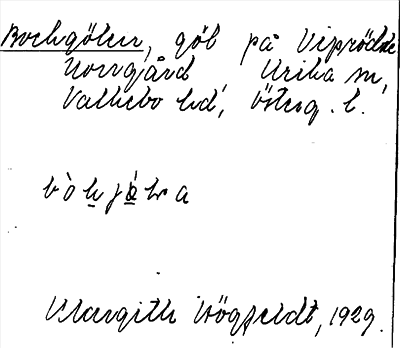 Bockgölen, göl på Viprödde
Norrgård Ulrika sn,
Valkebo hd, Österg. l.
Margith Högfeldt, 1929.